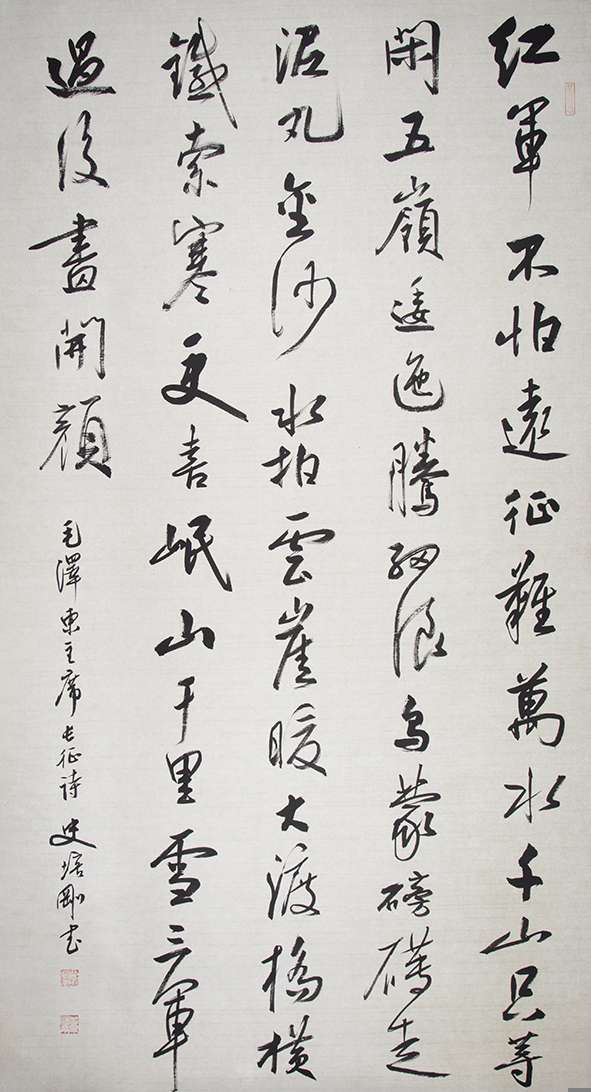 紅軍不怕遠征難萬水千山只等
閑五嶺逶迤騰細浪烏蒙磅礴走
泥丸金沙水拍雲崖暖大渡橋橫
鐵索寒更喜岷山千里雪三軍
過後盡開顏
毛澤東主席長征詩 史培剛书